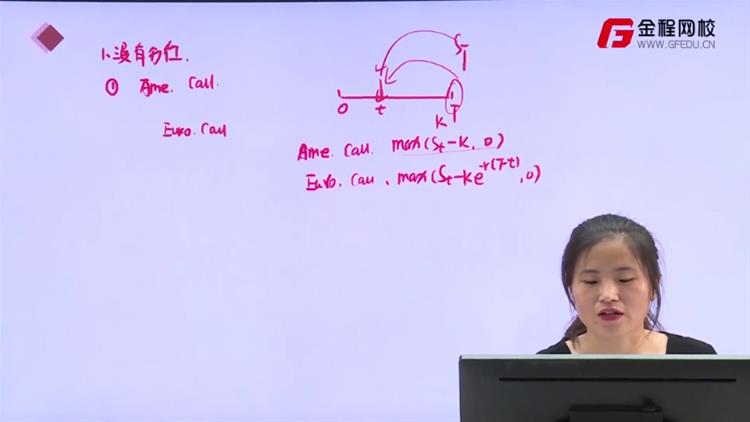 金程网校
WWW.GFEDU.CN
1. 没有分红.
① Ame. Call.
Euro. Call
S_T
0 t T
K
Ame. Call. max(S_t-K, 0)
Euro. Call, max(S_t-Ke^{-r(T-t)}, 0)